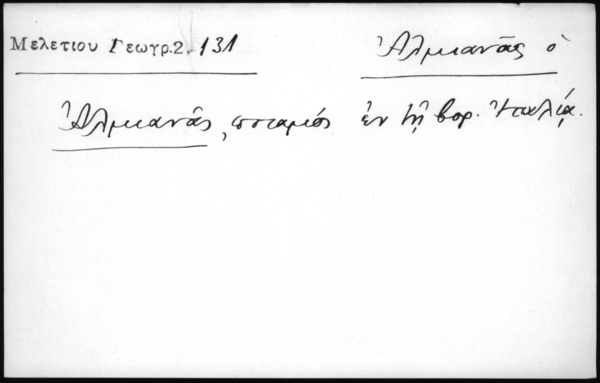 Μελετίου Γεωγρ. 2. 131
Ἀλμιανᾶς ὁ
Ἀλμιανᾶς, ποταμός ἐν τῇ βορ. Ἰταλίᾳ.